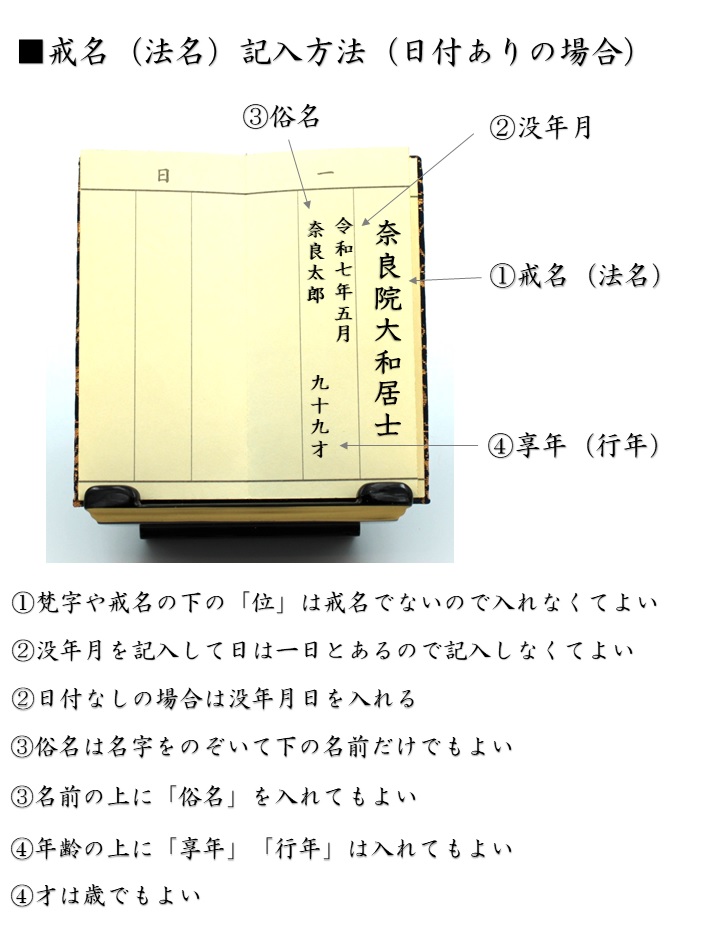 ■戒名（法名）記入方法（日付ありの場合）
③俗名
②没年月
一日
奈良院大和居士
令和七年五月
奈良太郎　九十九才
①戒名（法名）
④享年（行年）
①梵字や戒名の下の「位」は戒名でないので入れなくてよい
②没年月を記入して日は一日とあるので記入しなくてよい
②日付なしの場合は没年月日を入れる
③俗名は名字をのぞいて下の名前だけでもよい
③名前の上に「俗名」を入れてもよい
④年齢の上に「享年」「行年」は入れてもよい
④才は歳でもよい